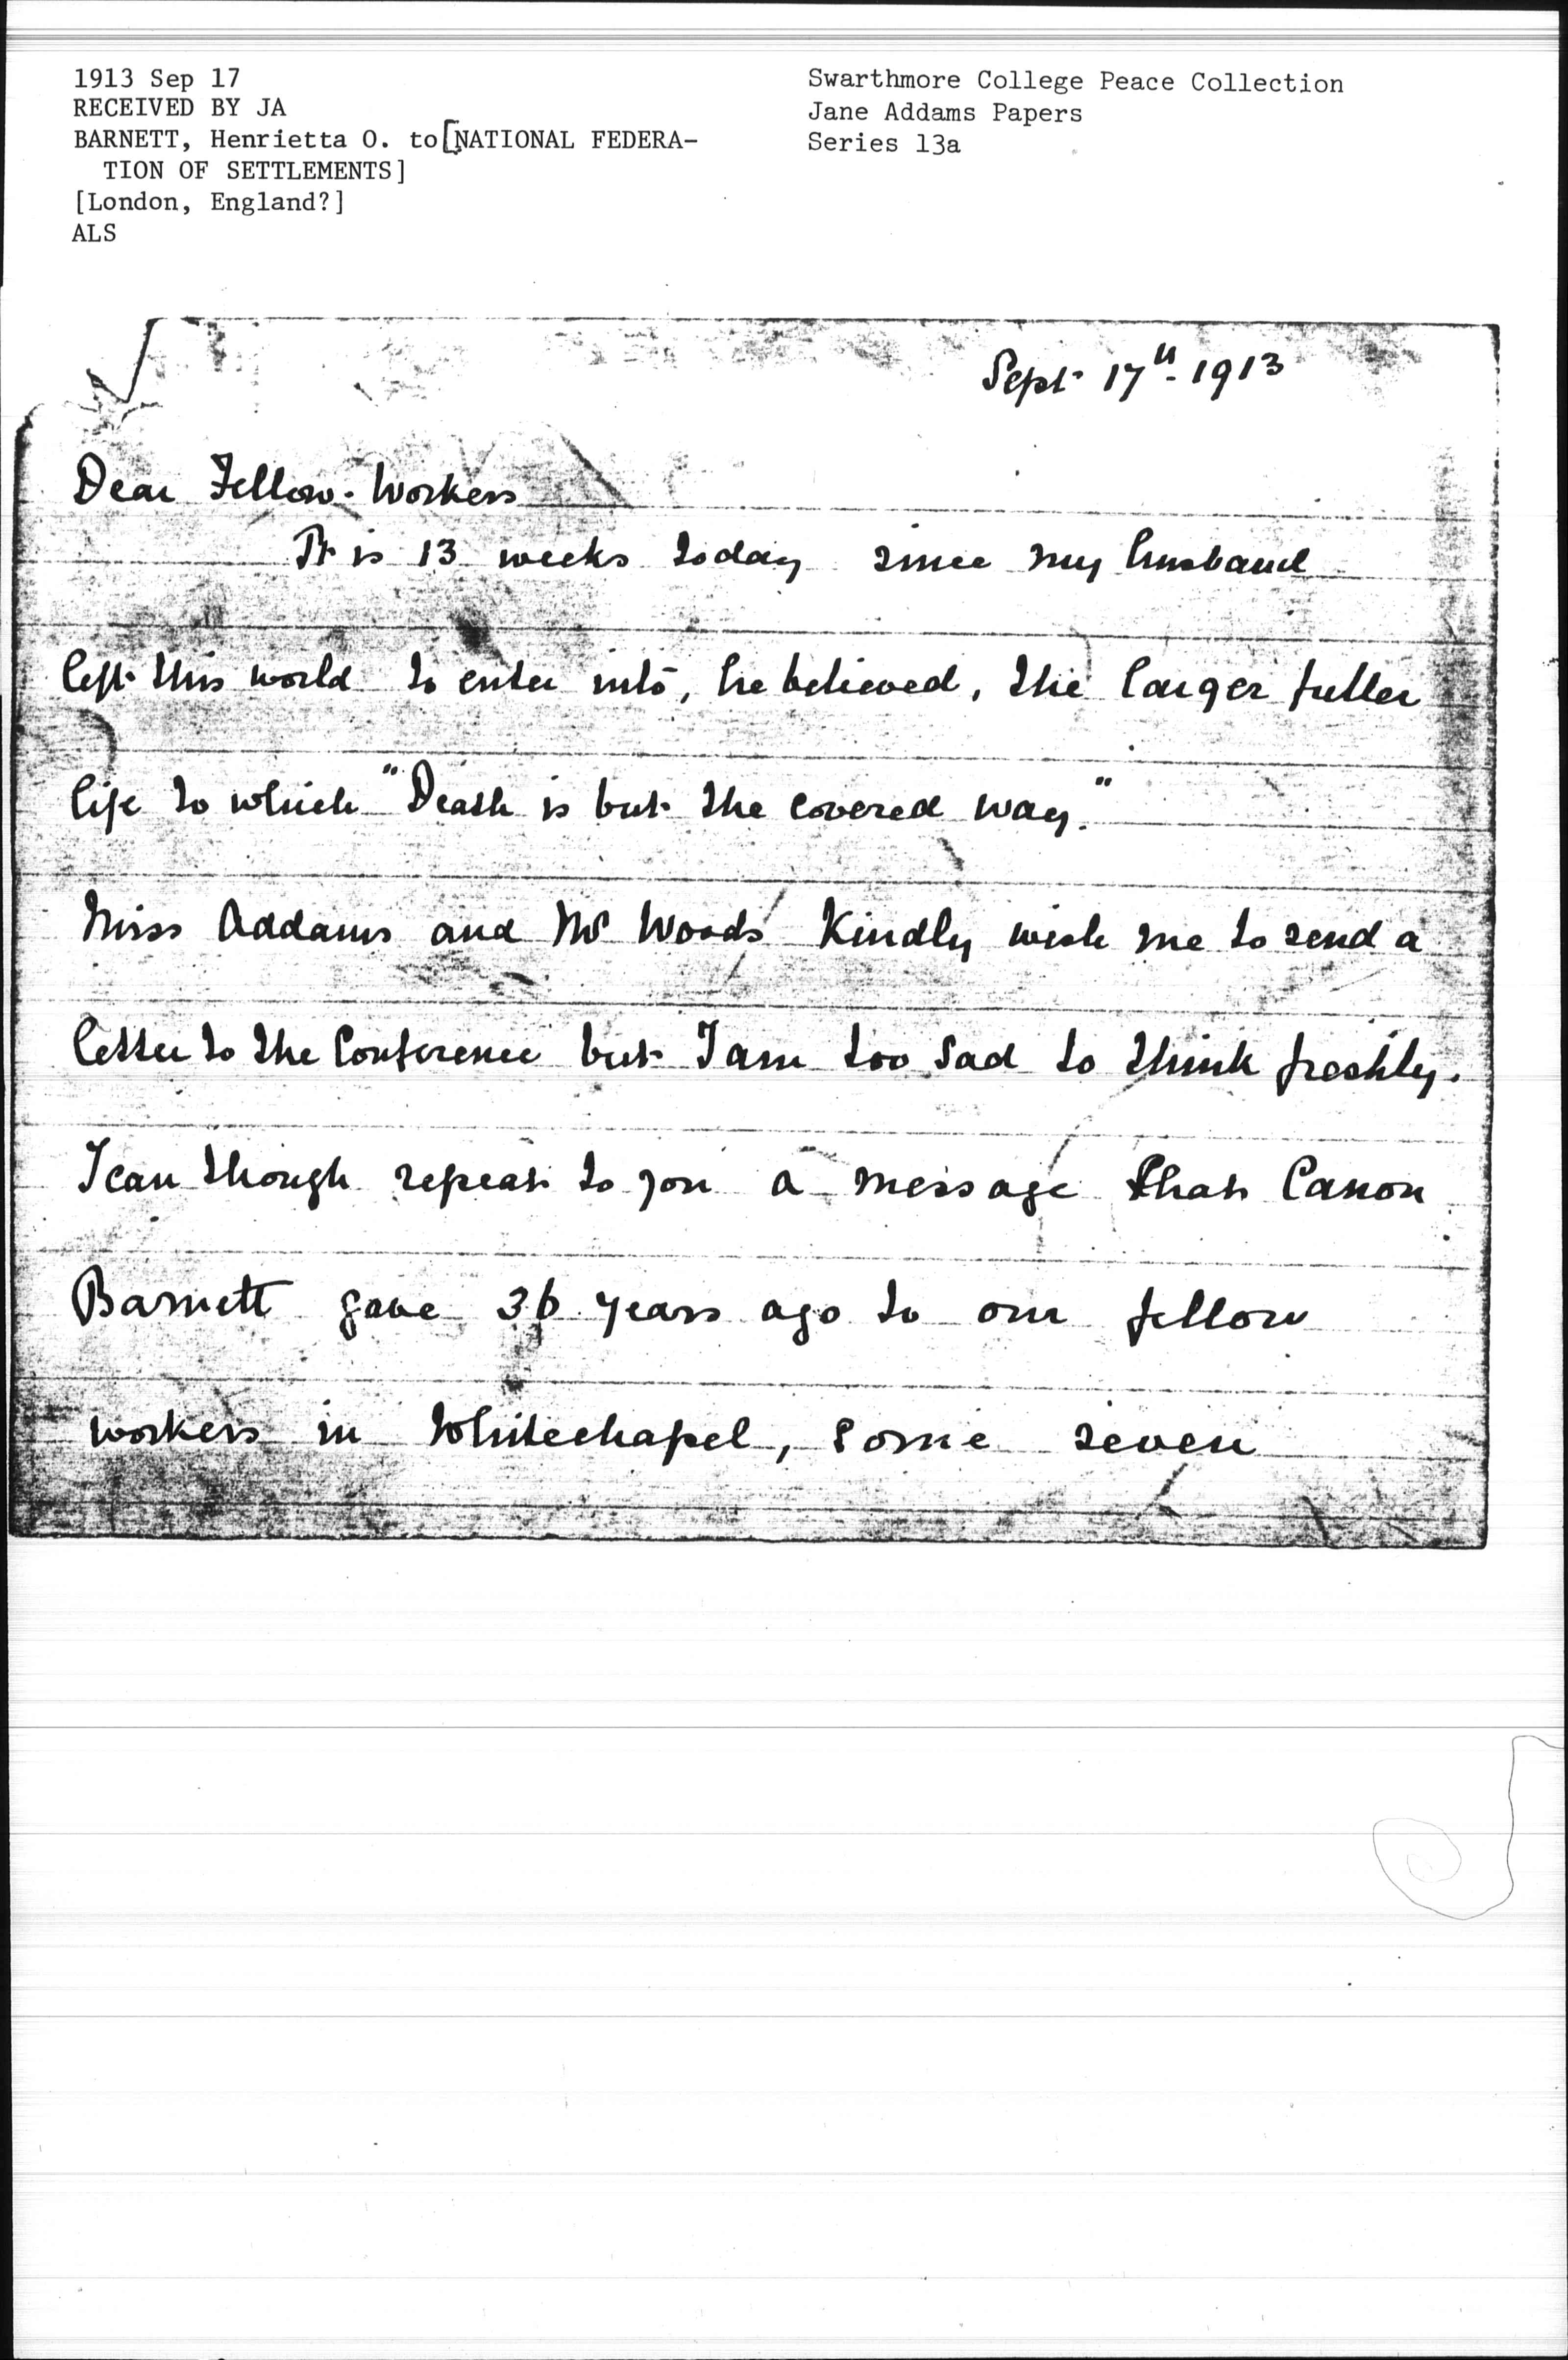 1913 Sep 17
RECEIVED BY JA
BARNETT, Henrietta O. to [NATIONAL FEDERA-
TION OF SETTLEMENTS]
[London, England?]
ALS
Swarthmore College Peace Collection
Jane Addams Papers
Series 13a
Sept 17th 1913
Dear Fellow-Workers
It is 13 weeks today since my husband
left this world to enter into, he believed, the larger fuller
life to which "Death is but the covered way."
Miss Addams and Mr Woods kindly wish me to send a
letter to the Conference but I am too sad to think freshly.
I can though repeat to you a message that Canon
Barnett gave 36 years ago to our fellow
workers in Whitechapel, some seven